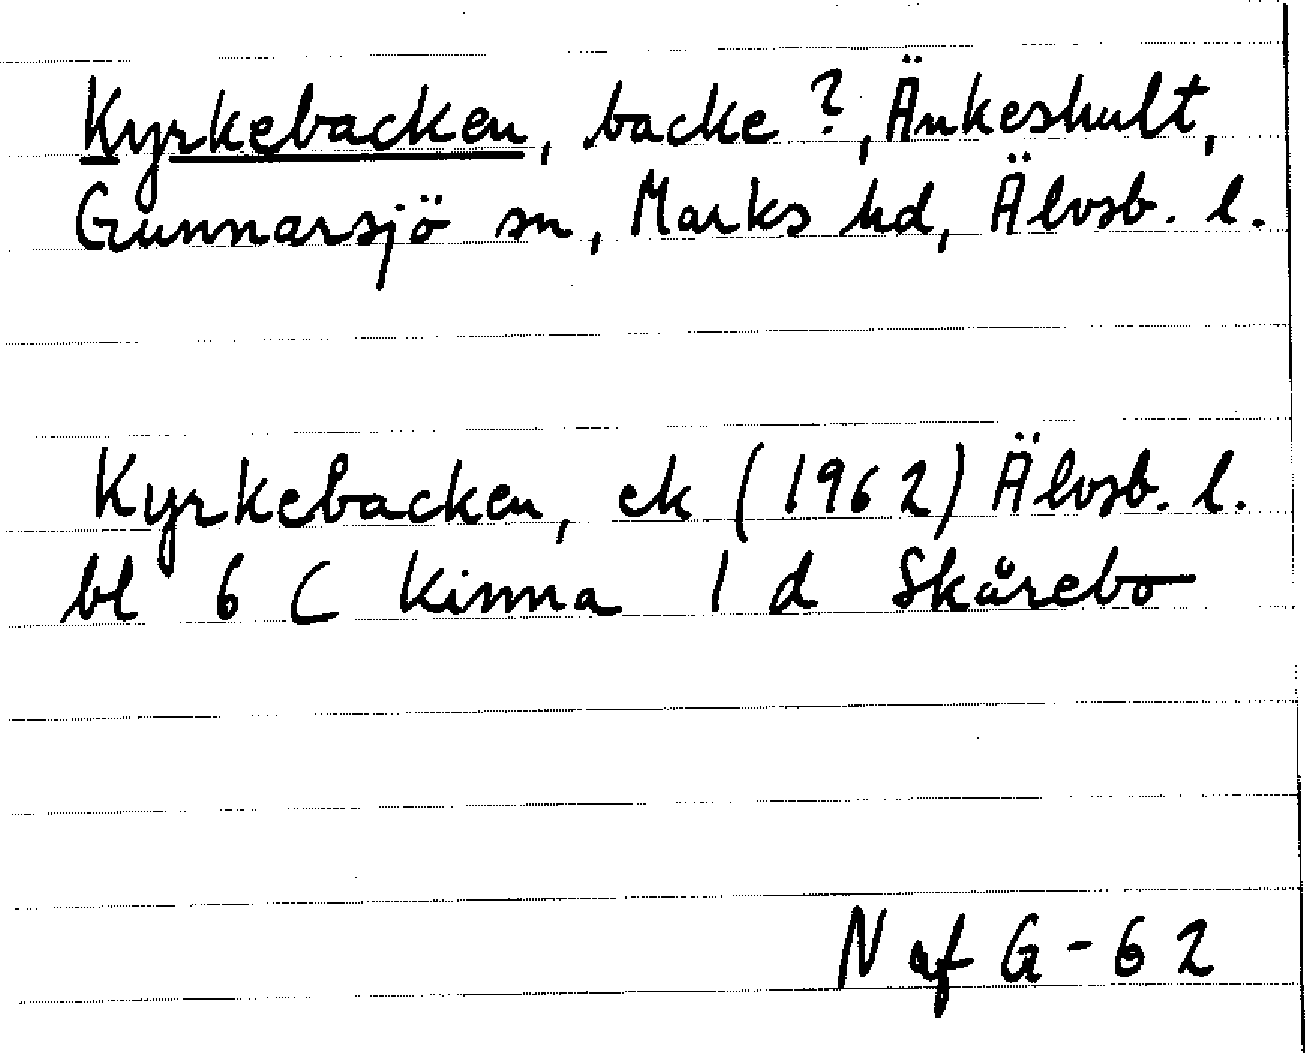 Kyrkebacken, backe ?, Änkeshult,
Gunnarsjö sn, Marks hd, Älvsb. l.
Kyrkebacken, ek (1962) Älvsb. l.
bl 6 C Kinna 1 d Skårebo
N af G-62